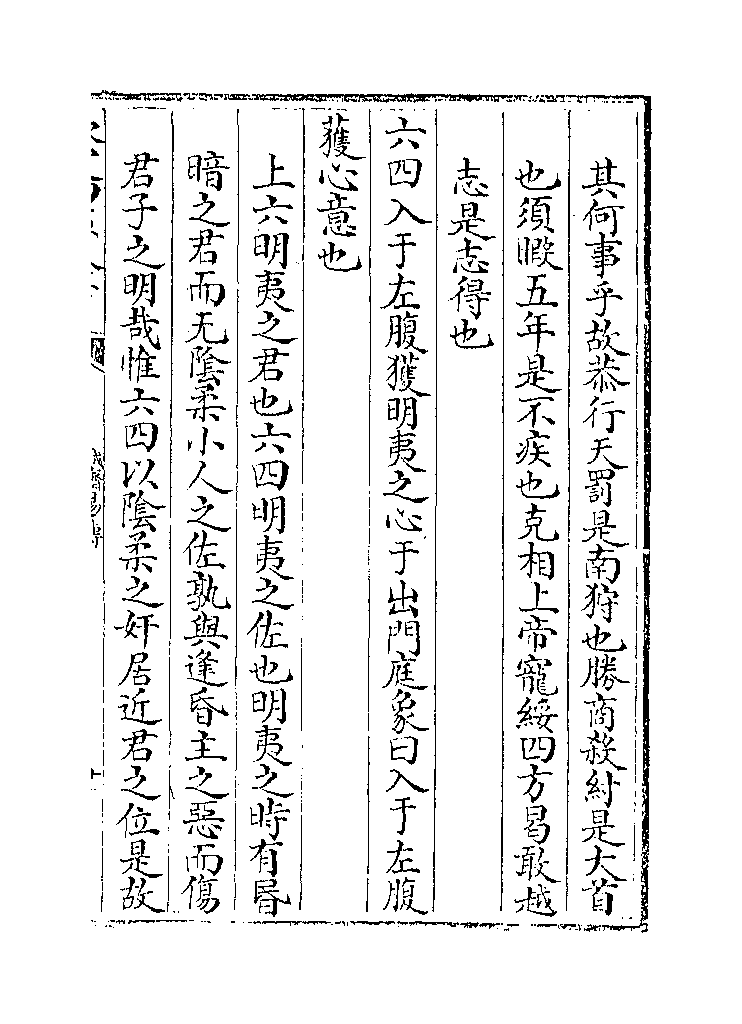 其何事乎故恭行天罰是南狩也勝商殺紂是大首
也須暇五年是不疾也克相上帝寵綏四方曷敢越
志是志得也
六四入于左腹獲明夷之心于出門庭象曰入于左腹
獲心意也
上六明夷之君也六四明夷之佐也明夷之時有昬
暗之君而无陰柔小人之佐孰與逢昏主之惡而傷
君子之明哉惟六四以陰柔之奸居近君之位是故
誠齋易傳